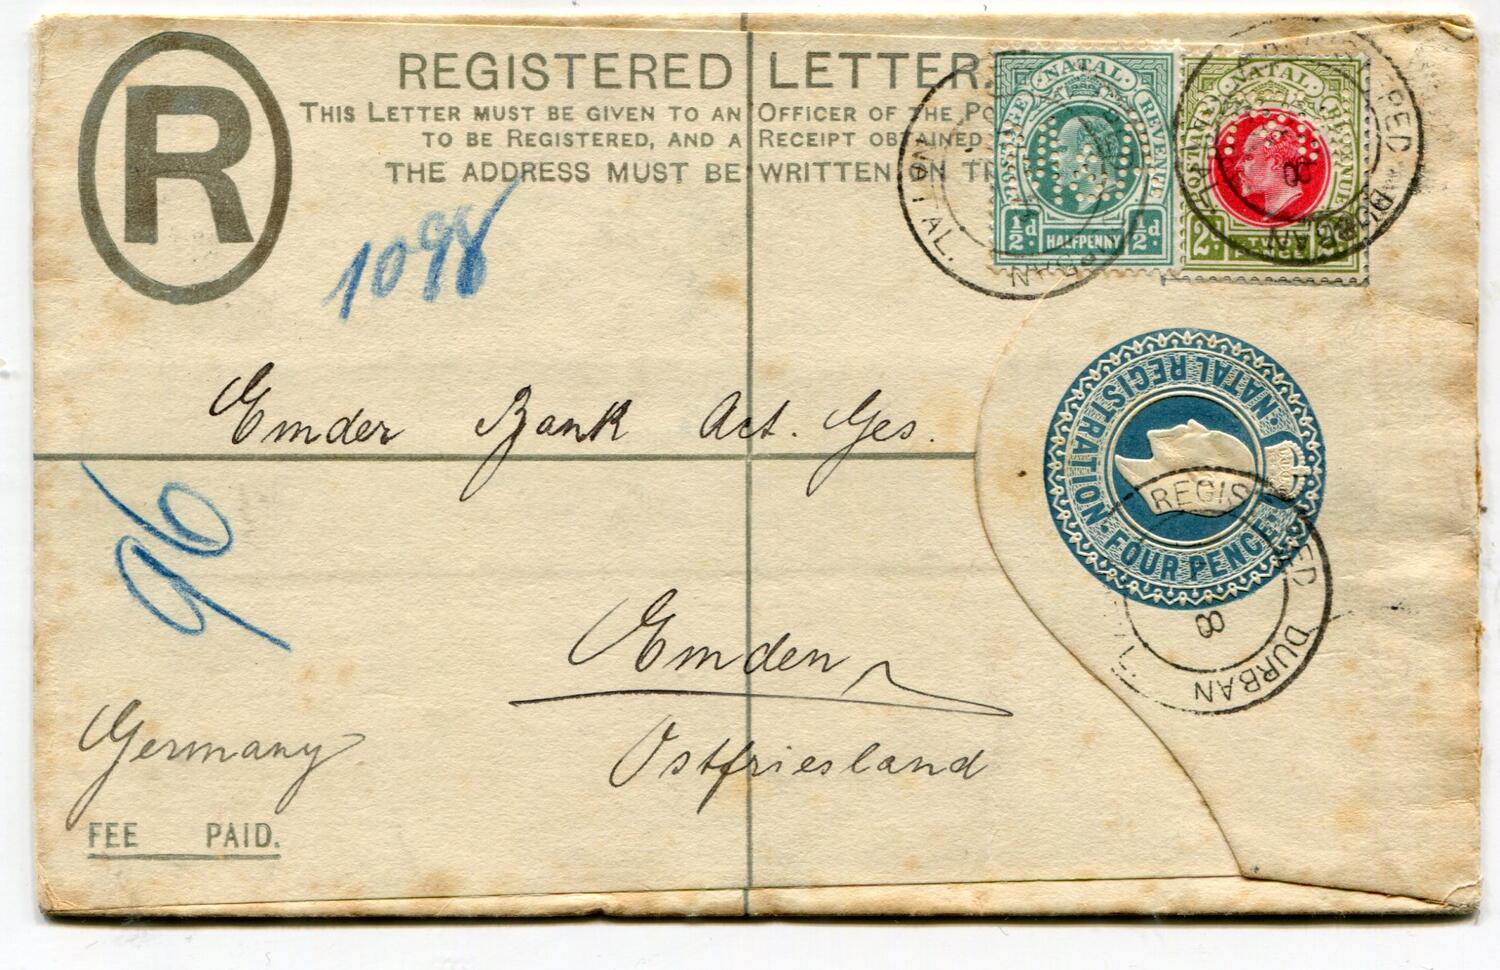 R
REGISTERED LETTER.
THIS LETTER MUST BE GIVEN TO AN OFFICER OF THE PO
TO BE REGISTERED, AND A RECEIPT OBTAINED
THE ADDRESS MUST BE WRITTEN ON TH
NATAL
POSTAGE REVENUE
½d HALFPENNY ½d
NATAL
POSTAGE REVENUE
2d TWO PENCE 2d
NATAL.
DURBAN
8
1098
NATAL REGISTRATION
FOUR PENCE
Emder Bank Act. Ges.
96
REGISTERED DURBAN
8
Emden
Germany
Ostfriesland
FEE PAID.